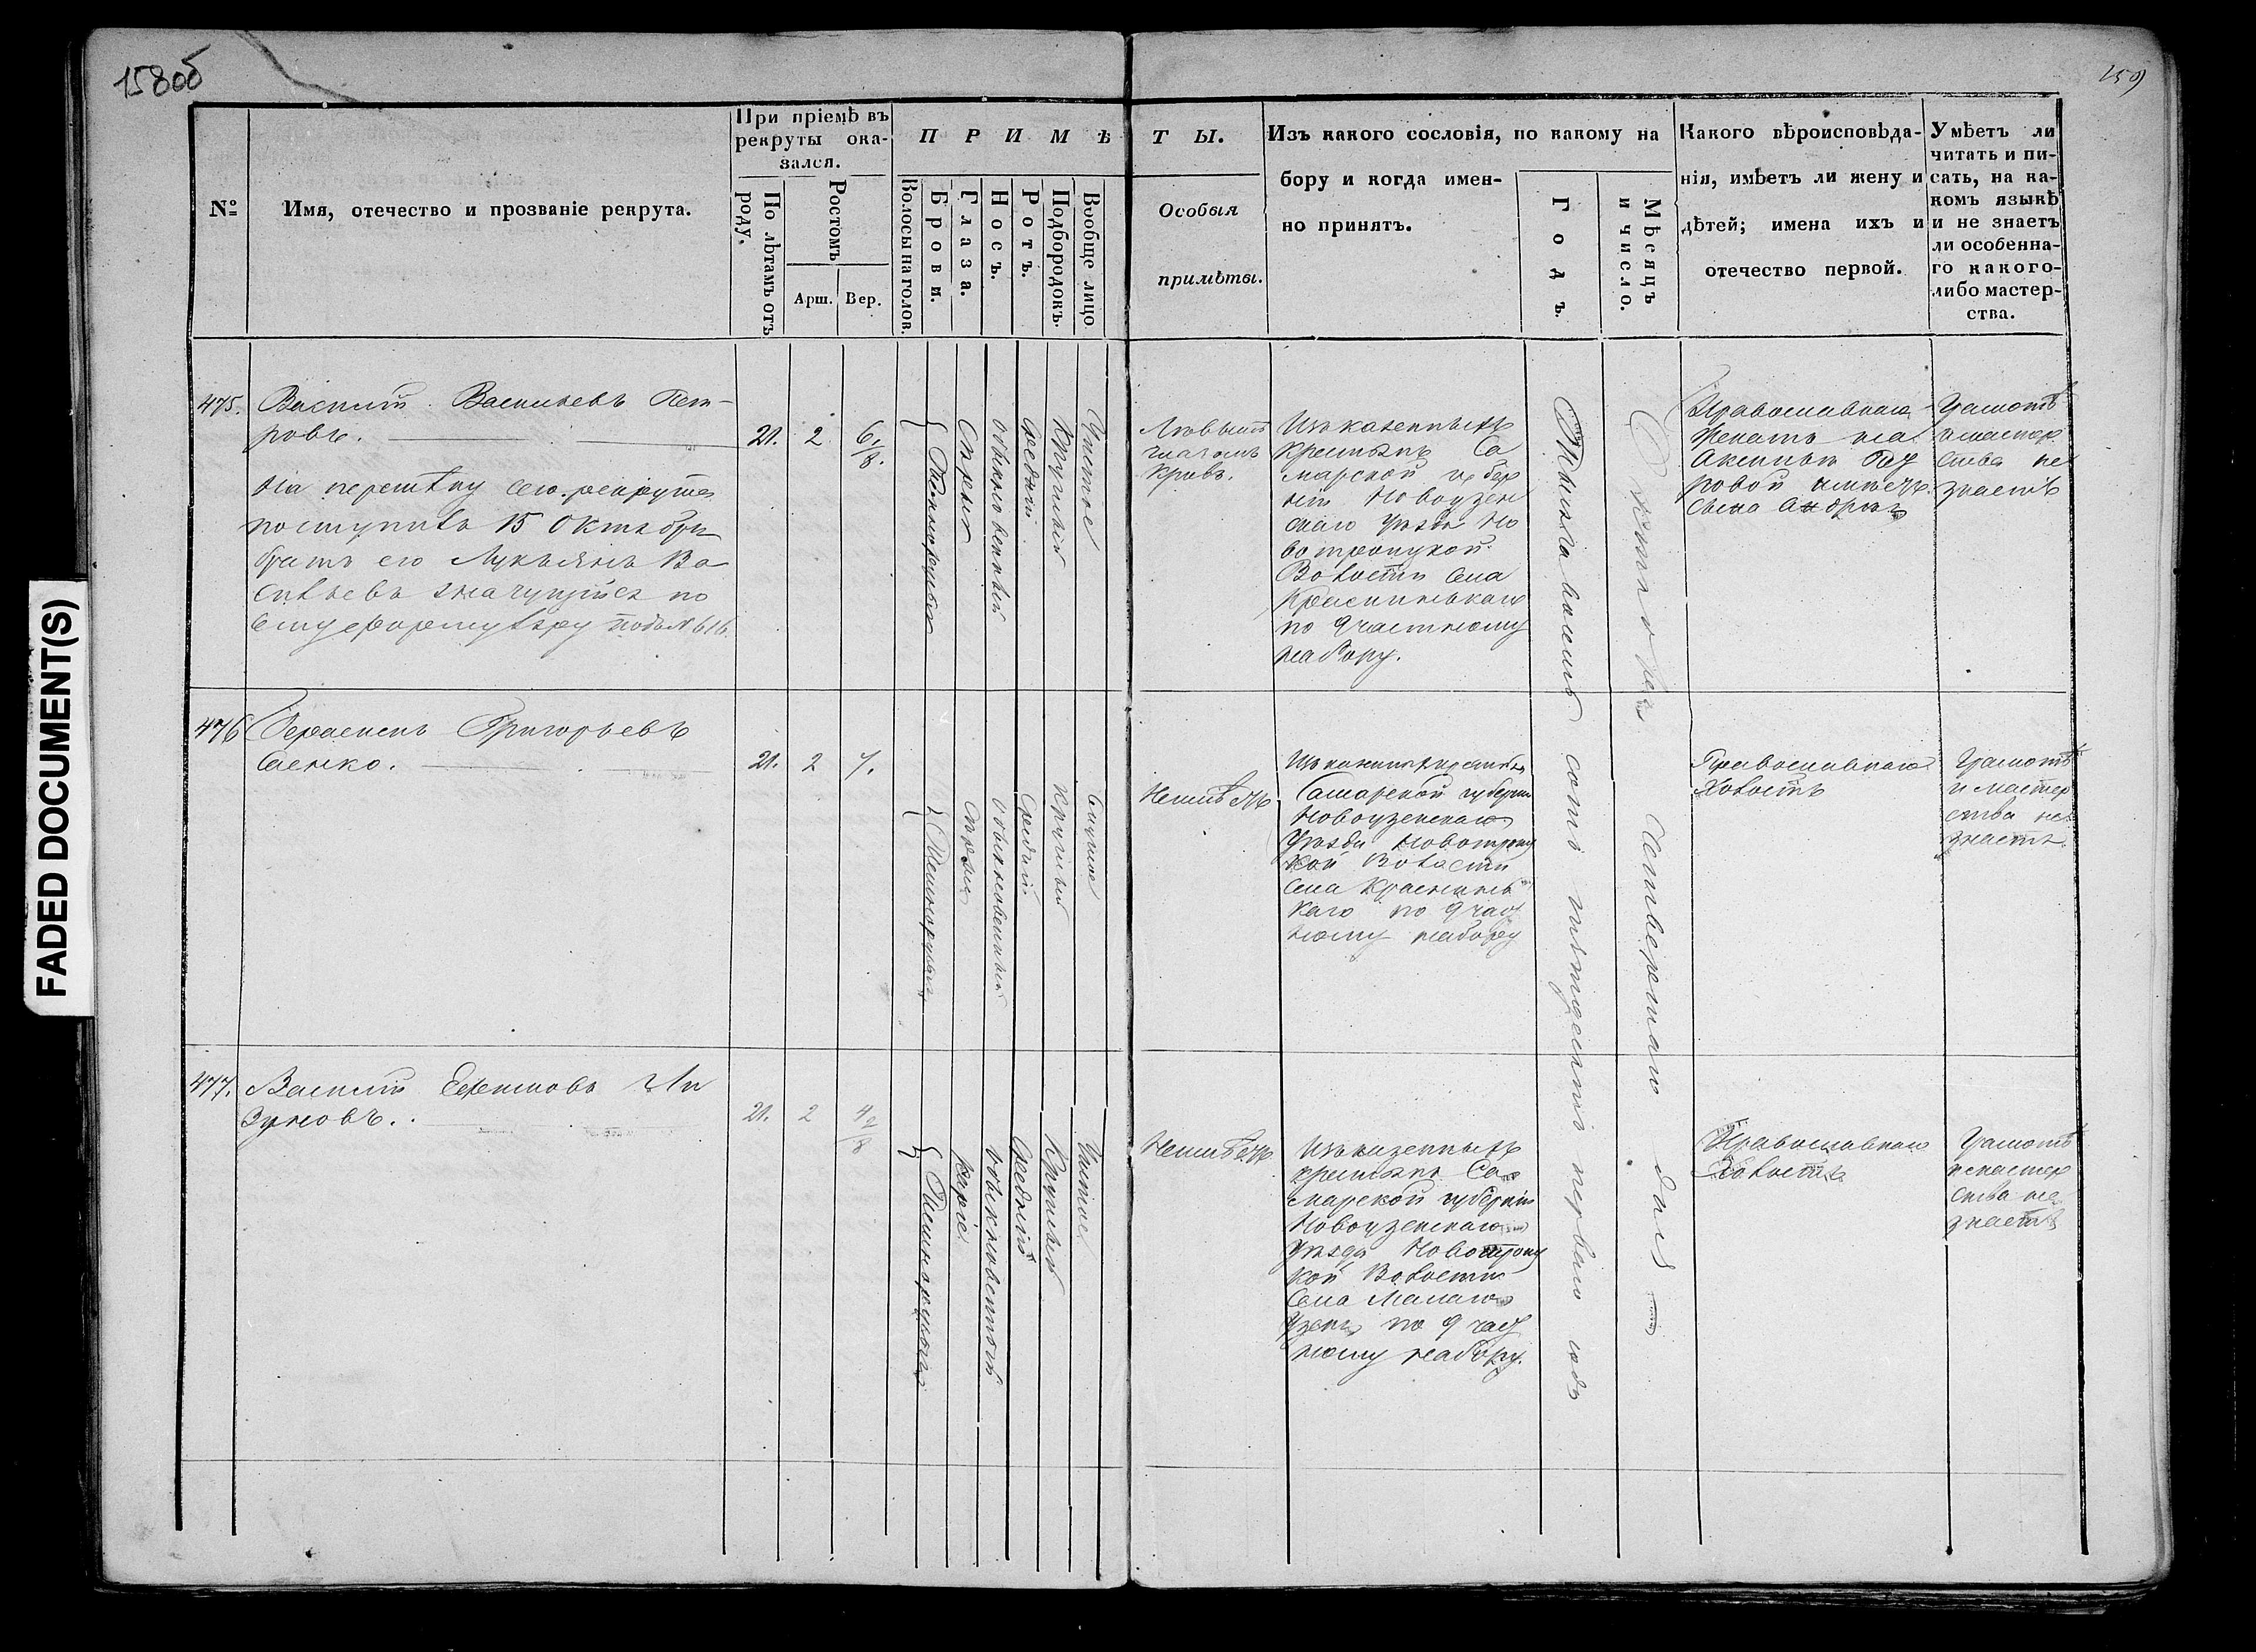 158об
159
FADED DOCUMENT(S)
№
Имя, отечество и прозваніе рекрута.
При пріемѣ въ
рекруты ока-
зался.
По лѣтамъ отъ
роду.
Ростомъ
Арш.
Вер.
ПРИМѢТЫ.
Волосы на голов.
Брови.
Глаза.
Носъ.
Ротъ.
Подбородокъ.
Вообще лицо
Особыя
примѣты.
Изъ какого сословія, по какому на
бору и когда имен-
но принятъ.
Годъ.
Мѣсяцъ
и число.
Какого вѣроисповѣда-
нія, имѣетъ ли жену и
дѣтей; имена ихъ и
отечество первой.
Умѣетъ ли
читать и пи-
сать, на ка-
комъ языкѣ
и не знаетъ
ли особенна-
го какого-
либо мастер-
ства.
475.
Василій Васильевъ Пет-
ровъ.
На перемѣну сего рекрута
поступилъ 15 Октября
братъ его Лукьянъ Ва
сильевъ значущійся по
сему формуляру подъ № 616.
21.
2
6 1/8.
Темнорусые
Сѣрые
обыкновенный
Средній
Круглый
Чистое
Лѣвымъ
глазомъ
кривъ.
Изъ казенныхъ
Крестьянъ Са
марской губер
ніи Новоузен
скаго Уѣзда Но
вотроицкой
Волости Села
по 9 частному
набору.
Тысяча восемь сотъ пятьдесятъ перваго года
Октября
Четвертаго дня
Православнаго
Женатъ на
сына Андрея
Грамотѣ
и мастер
ства не
знаетъ
476
Герасимъ Григорьевъ
Саенко.
21.
2
7.
Темнорусые
Сѣрые
обыкновенный
Средній
Круглый
Смуглое
Неимѣетъ
Изъ казенных крестьян
Самарской губерніи
Новоузенскаго
Уѣзда Новотроиц
кой Волости
Села
по 9 част
ному набору
Православнаго
Холостъ
Грамотѣ
и мастер
ства не
знаетъ.
477.
Василій Ефимовъ Ли
зуновъ.
21.
2
4 2/8
Темнорусые
Каріе
обыкновенный
Средній
Круглый
Чистое
Неимѣетъ
Изъ казенныхъ
крестьянъ Са
марской губерніи
Новоузенскаго
Уѣзда Новотроиц
кой Волости
Села Малаго
Узеня по 9 част
ному набору.
Православнаго
Холостъ
Грамотѣ
и мастер
ства не
знаетъ